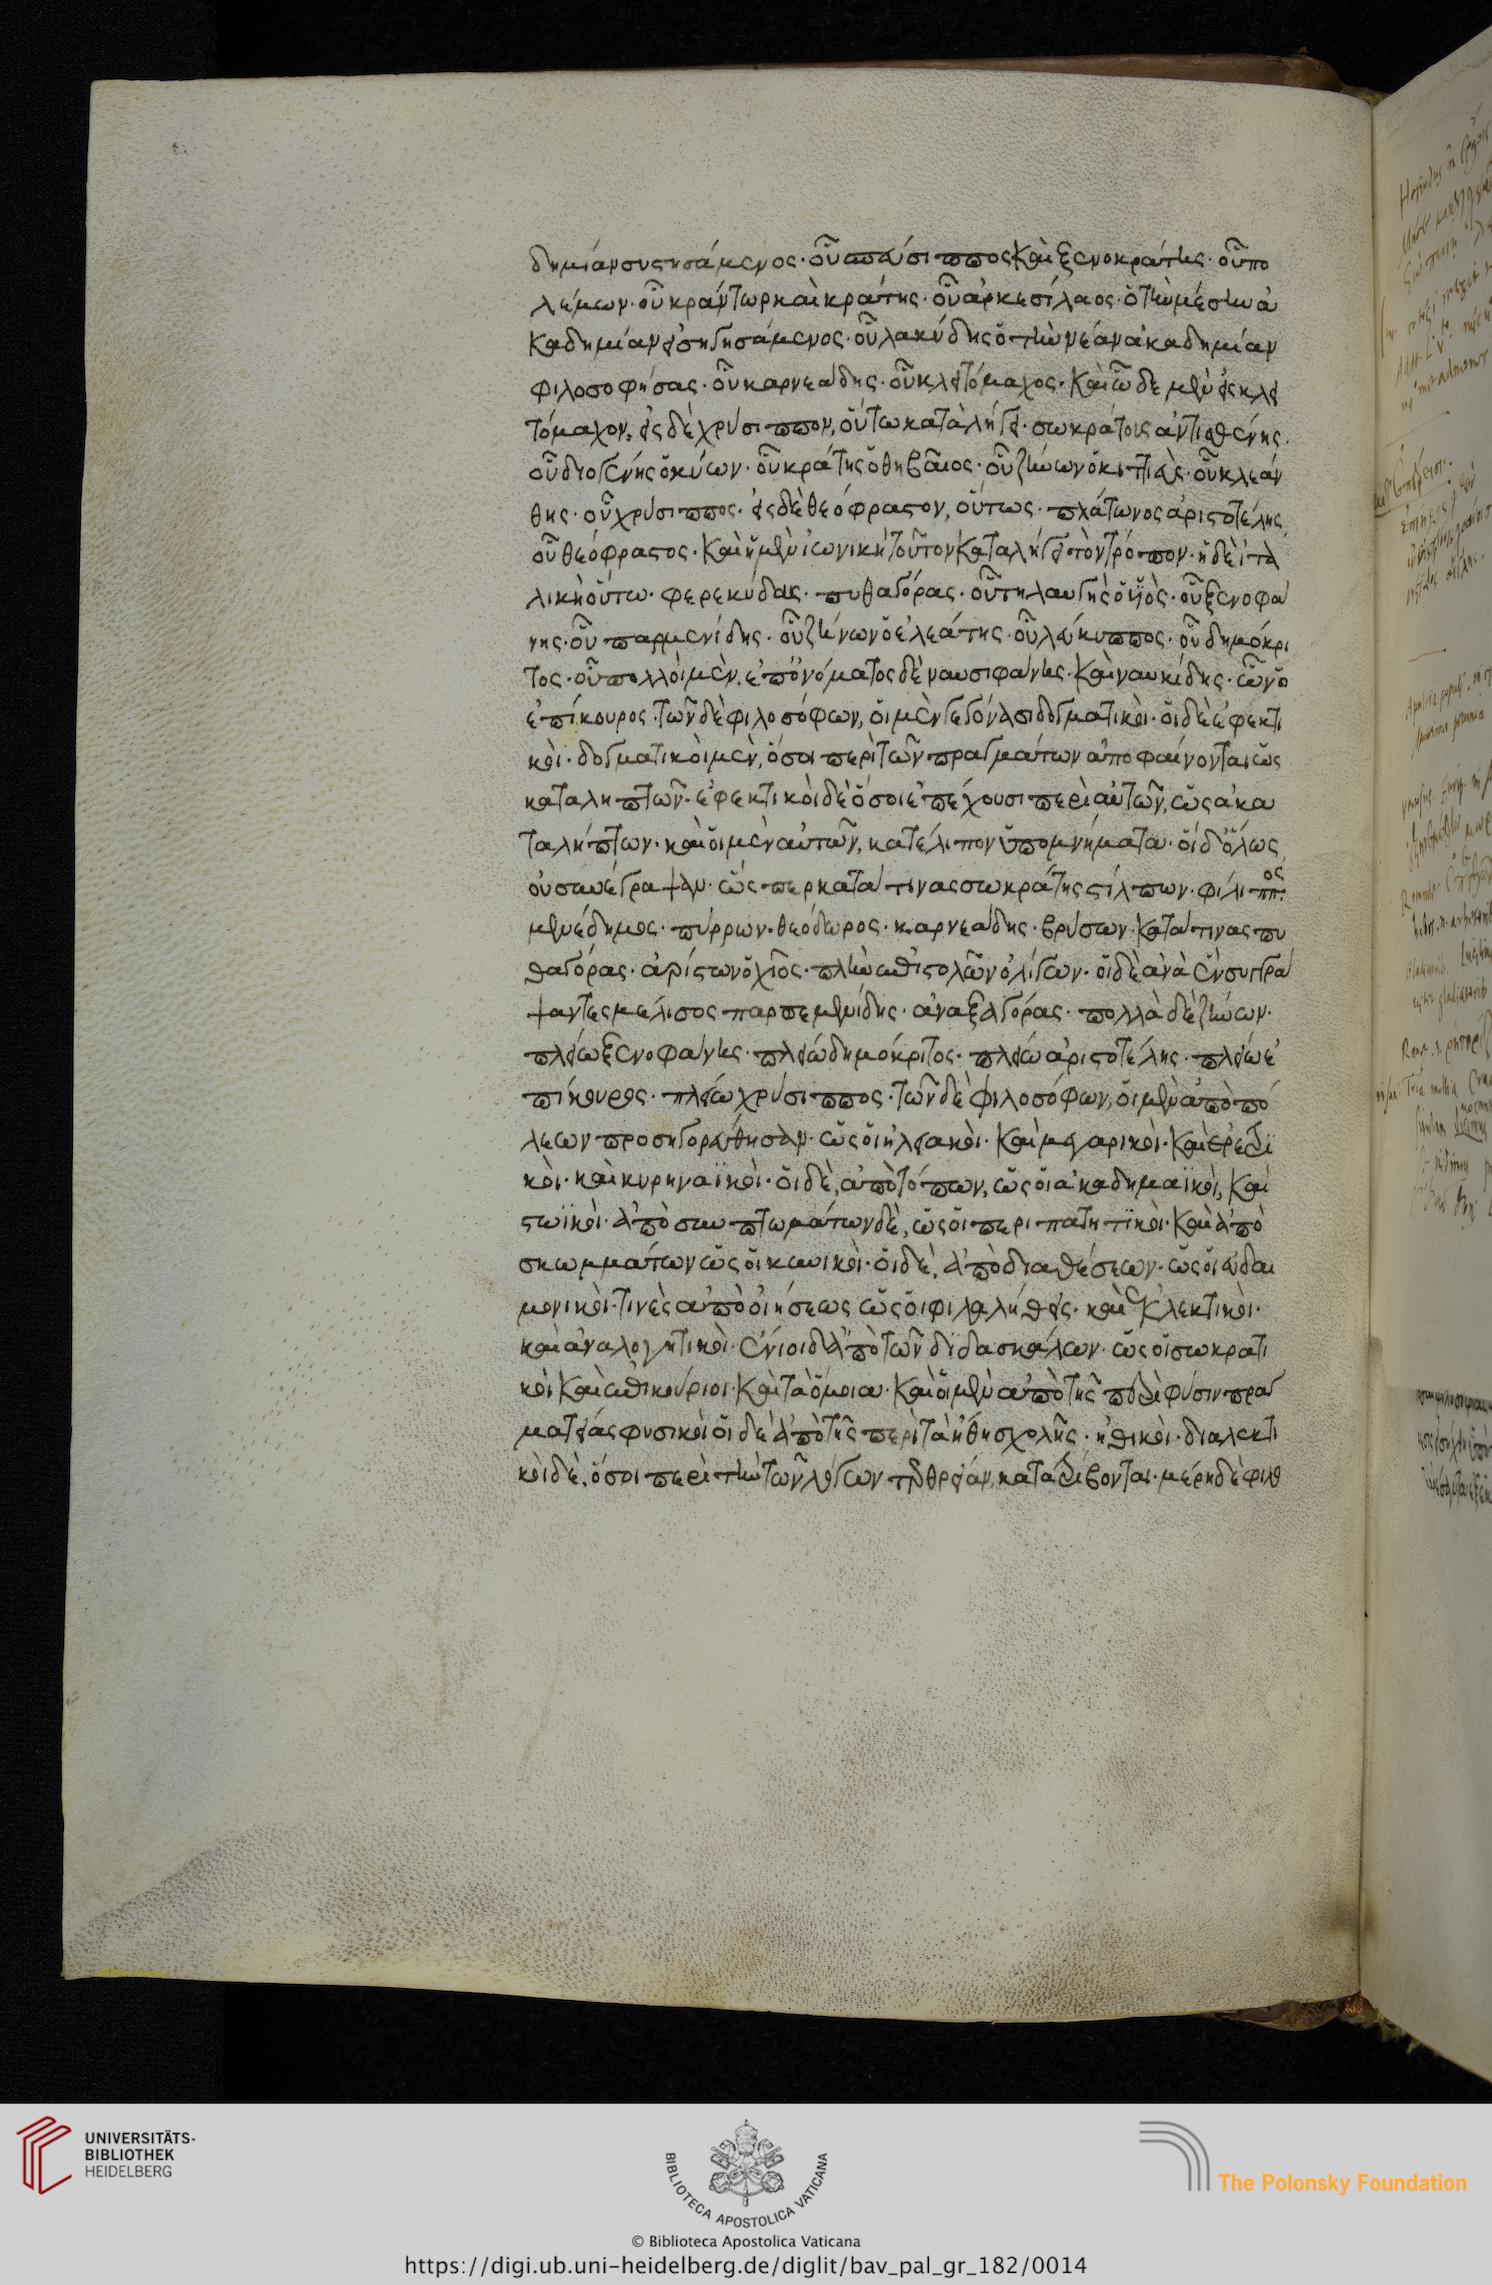 δημίαν συστησάμενος· οὗ σπεύσιππος καὶ ξενοκράτης· οὗ πο
λέμων· οὗ κράντωρ καὶ κράτης· οὗ ἀρκεσίλαος· ὁ τὴν μέσην ἀ
καδημίαν εἰσηγησάμενος· οὗ λακύδης ὁ τὴν νέαν ἀκαδημίαν
φιλοσοφήσας· οὗ καρνεάδης· οὗ κλειτόμαχος· καὶ ὧδε μὲν εἰς κλει
τόμαχον. εἰς δὲ χρύσιππον, οὕτω καταλήγει· σωκράτους ἀντισθένης·
οὗ διογένης ὁ κύων· οὗ κράτης ὁ θηβαῖος· οὗ ζήνων ὁ κιττιεὺς· οὗ κλεάν
θης· οὗ χρύσιππος· εἰς δὲ θεόφραστον, οὕτως· πλάτωνος ἀριστοτέλης,
οὗ θεόφραστος· καὶ ἡ μὲν ἰωνικὴ τοῦτον καταλήγει τὸν τρόπον· ἡ δὲ ἰτα
λικὴ οὕτω· φερεκύδους· πυθαγόρας· οὗ τηλαυγὴς ὁ υἱὸς· οὗ ξενοφά
νης· οὗ παρμενίδης· οὗ ζήνων ὁ ἐλεάτης· οὗ λεύκιππος· οὗ δημόκρι
τος· οὗ πολλοὶ μὲν, ἐπ' ὀνόματος δὲ ναυσιφάνης· καὶ ναυκίδης· ὧν ὁ
ἐπίκουρος· τῶν δὲ φιλοσόφων, οἱ μὲν γεγόνασι δογματικοὶ· οἱ δὲ ἐφεκτι
κοὶ· δογματικοὶ μὲν, ὅσοι περὶ τῶν πραγμάτων ἀποφαίνονται ὡς
καταληπτῶν· ἐφεκτικοὶ δὲ ὅσοι ἐπέχουσι περὶ αὐτῶν, ὡς ἀκα
ταλήπτων· καὶ οἱ μὲν αὐτῶν, κατέλιπον ὑπομνήματα· οἱ δ' ὅλως
οὐ συνέγραψαν· ὥσπερ κατά τινας σωκράτης στίλπων· φίλιππος·
μενέδημος· πύρρων· θεόδωρος· καρνεάδης· βρύσων· κατά τινας πυ
θαγόρας· ἀρίστων ὁ χῖος· πλὴν ἐπιστολῶν ὀλίγων· οἱ δὲ ἀνὰ ἓν συγγρά
ψαντες μέλισος παρπεμνίδης· ἀναξαγόρας· πολλὰ δὲ ζήνων·
πλείω ξενοφάνης· πλείω δημόκριτος· πλείω ἀριστοτέλης· πλείω ἐ
πίκουρος· πλείω χρύσιππος· τῶν δὲ φιλοσόφων, οἱ μὲν ἀπὸ πό
λεων προσηγορεύθησαν· ὡς οἱ ἠλειακοὶ· καὶ μεγαρικοὶ· καὶ ἐρετρι
κοὶ· καὶ κυρηναϊκοὶ· οἱ δὲ, ἀπὸ τόπων, ὡς οἱ ἀκαδημαϊκοὶ, καὶ
στωϊκοὶ· ἀπὸ συμπτωμάτων δὲ, ὡς οἱ περιπατητικοὶ· καὶ ἀπὸ
σκωμμάτων ὡς οἱ κυνικοὶ· οἱ δὲ, ἀπὸ διαθέσεων· ὡς οἱ εὐδαι
μονικοὶ· τινὲς ἀπὸ οἰήσεως ὡς οἱ φιλαλήθεις· καὶ ἐκλεκτικοὶ·
καὶ ἀναλογητικοὶ· ἔνιοι δ' ἀπὸ τῶν διδασκάλων· ὡς οἱ σωκρατι
κοὶ καὶ ἐπικούριοι· καὶ τὰ ὅμοια· καὶ οἱ μὲν ἀπὸ τῆς περὶ φύσιν πραγ
ματείας φυσικοὶ οἱ δὲ ἀπὸ τῆς περὶ τὰ ἤθη σχολῆς· ἠθικοὶ· διαλεκτι
κοὶ δὲ, ὅσοι περὶ τὴν τῶν λόγων τερθρείαν, κατατρίβονται· μέρη δὲ φιλο
UNIVERSITÄTS-
BIBLIOTHEK
HEIDELBERG
BIBLIOTECA APOSTOLICA VATICANA
The Polonsky Foundation
© Biblioteca Apostolica Vaticana
https://digi.ub.uni-heidelberg.de/diglit/bav_pal_gr_182/0014